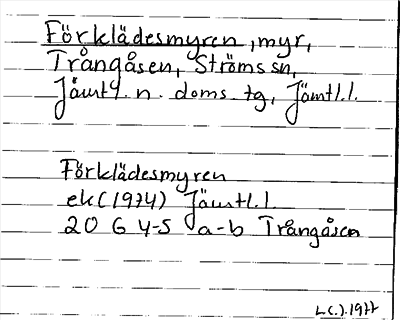 Förklädesmyren, myr,
Trångåsen, Ströms sn,
Jämtl. n. doms. tg, Jämtl.l.
Förklädesmyren
ek (1974) Jämtl.l.
20 G 4-5 a-b Trångåsen
1977